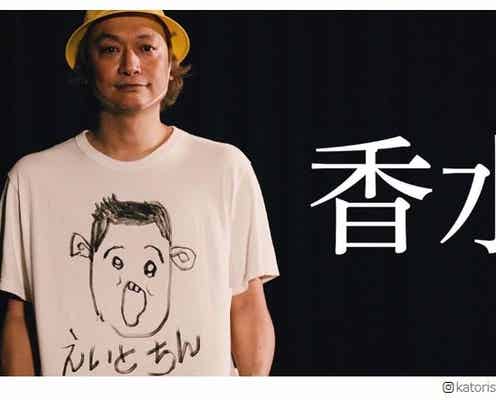 香水
えいとちん
katoris